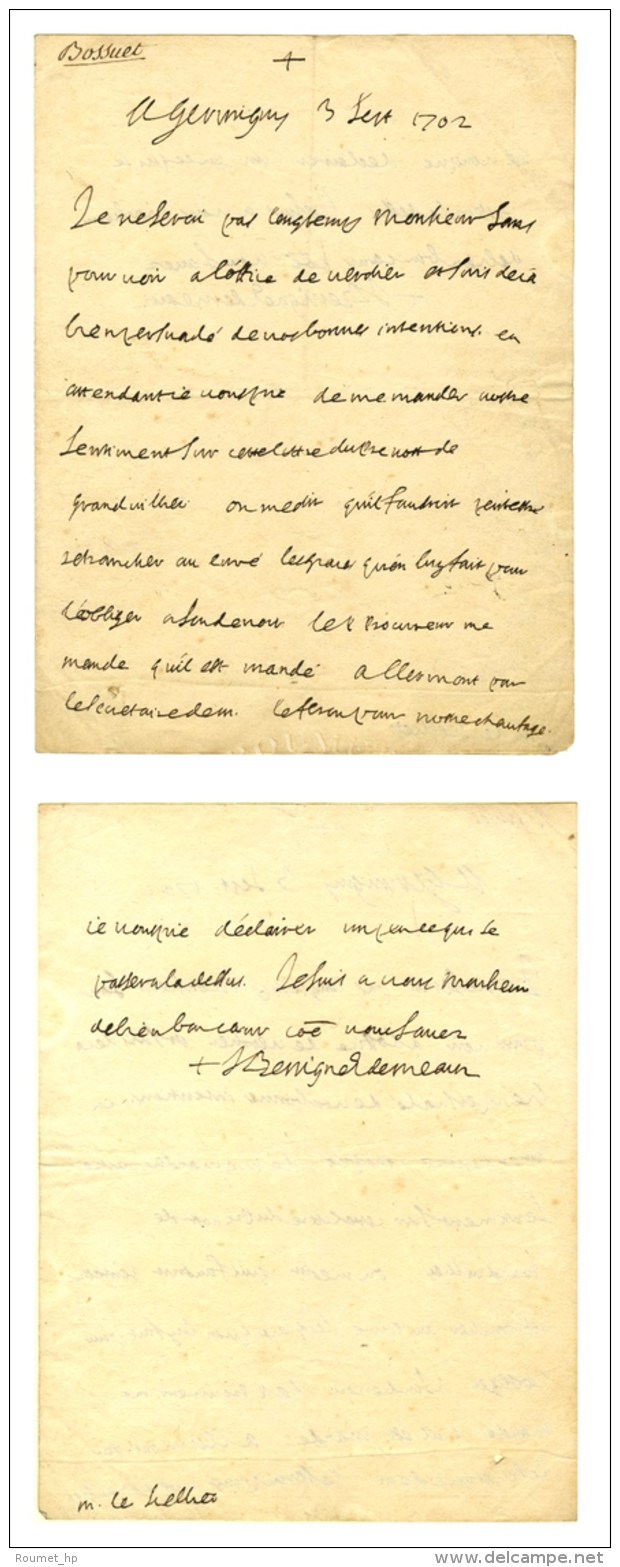 Bossuet
+
A Germigny 3 Sept 1702
Je ne serai pas longtemps Monsieur sans
pourvoir a l'office de verdier et suis deia
bien persuadé de vos bonnes intentions. en
attendant ie vous prie de me mander vostre
sentiment sur cette lettre du Prevost de
grandvillier on me dit qu'il faudroit peutestre
retrancher au curé les grais qu'on luy fait pour
l'obliger a Le P Procureur me
mande qu'il est mandé a Clermont par
le secretaire de m. pour nostre chaufage.
ie vous prie d'éclairer un peu ce qui se
passera la dessus. Je suis a vous Monsieur
de bien bon cœur cõe vous savez
+ J Benigne E de meaux
m. le Scellier
Roumet_hp
delcampe.net